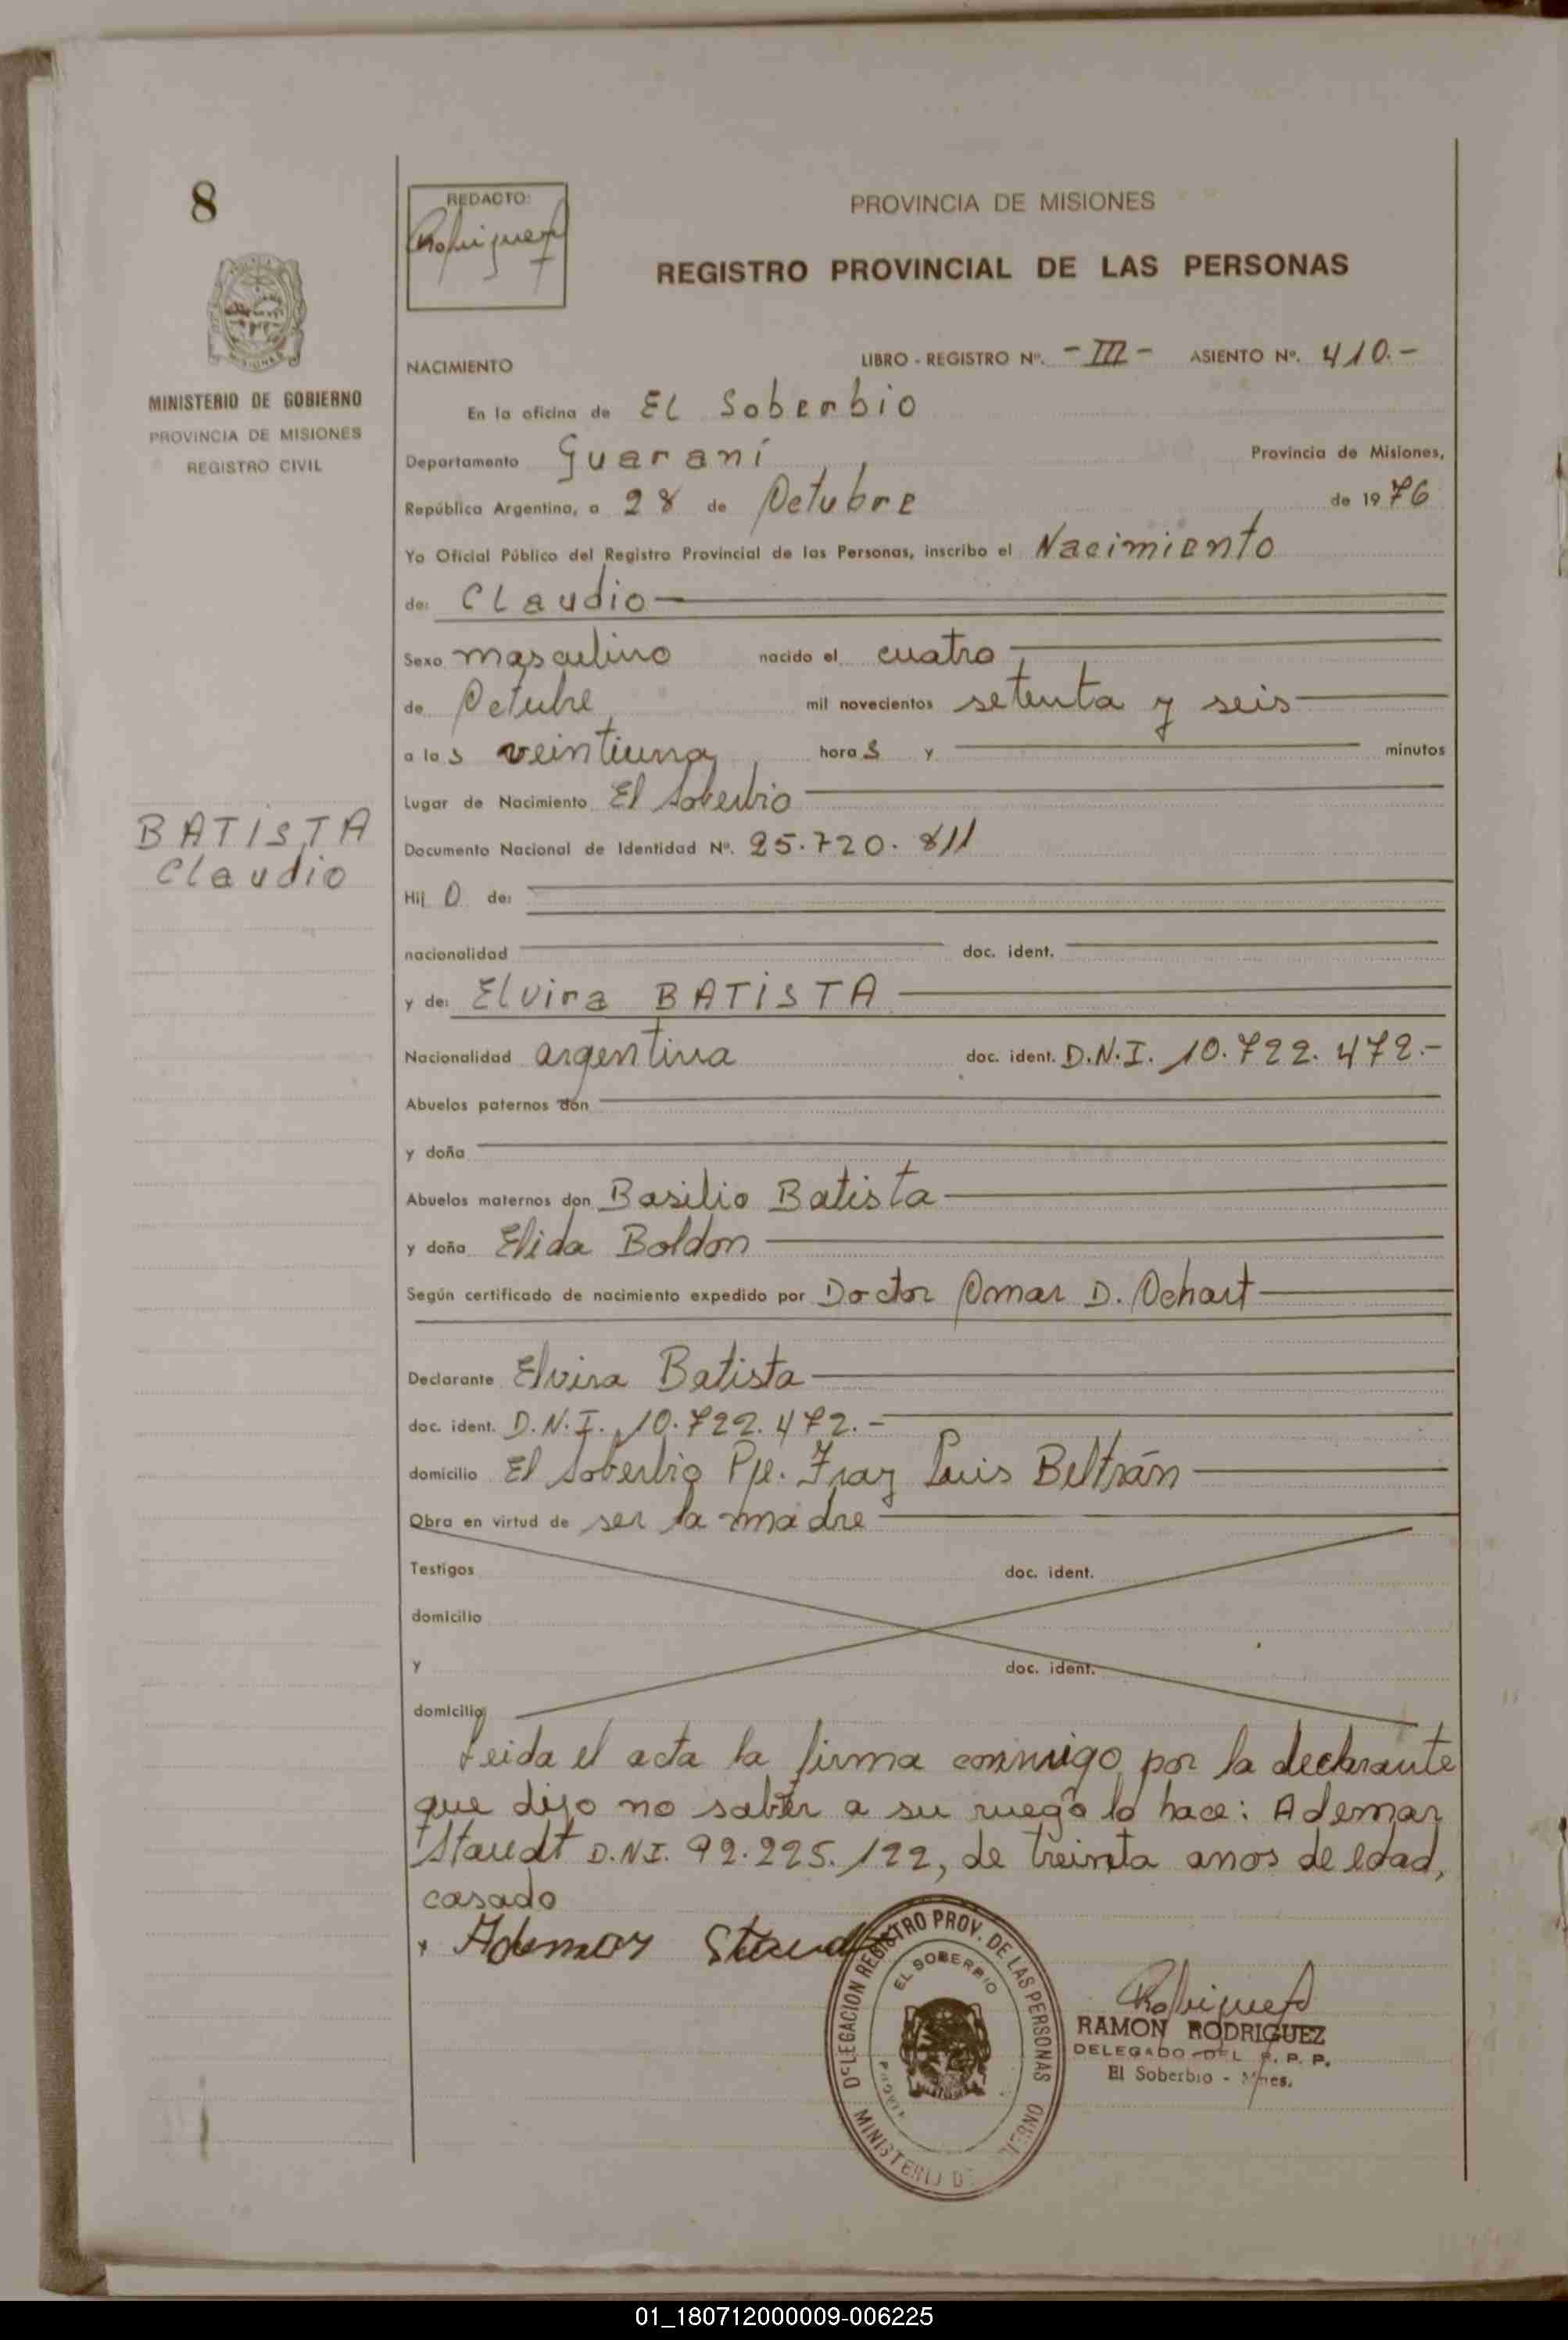 8
REDACTO:
Rodriguez
PROVINCIA DE MISIONES
REGISTRO PROVINCIAL DE LAS PERSONAS
MISIONES
MINISTERIO DE GOBIERNO
PROVINCIA DE MISIONES
REGISTRO CIVIL
NACIMIENTO LIBRO - REGISTRO Nº. - III - ASIENTO Nº. 410.-
En la oficina de EL Soberbio
Departamento Guaraní Provincia de Misiones,
República Argentina, a 28 de Octubre de 1976
Yo Oficial Público del Registro Provincial de las Personas, inscribo el Nacimiento
de: CLaudio
Sexo masculino nacido el cuatro
de Octubre mil novecientos setenta y seis
a las veintiuna horas y minutos
Lugar de Nacimiento El Soberbio
BATISTA
Claudio
Documento Nacional de Identidad Nº. 25.720.811
Hijo de:
nacionalidad doc. ident.
y de: Elvira BATISTA
Nacionalidad argentina doc. ident. D.N.I. 10.722.472.-
Abuelos paternos don
y doña
Abuelos maternos don Basilio Batista
y doña Elida Boldon
Según certificado de nacimiento expedido por Doctor Omar D. Ochart
Declarante Elvira Batista
doc. ident. D.N.I. 10.722.472.-
domicilio El Soberbio Pje. Fray Luis Beltrán
Obra en virtud de ser la madre
Testigos doc. ident.
domicilio
y doc. ident.
domicilio
Leida el acta la firma conmigo por la declarante
que dijo no saber a su ruego lo hace: Ademar
Staudt D.N.I. 92.225.122, de treinta anos de edad,
casado
Ademar Staudt
DELEGACION REGISTRO PROV. DE LAS PERSONAS
EL SOBERBIO
MINISTERIO DE
Rodriguez
RAMON RODRIGUEZ
DELEGADO DEL R. P. P.
El Soberbio - Mnes.
01_180712000009-006225